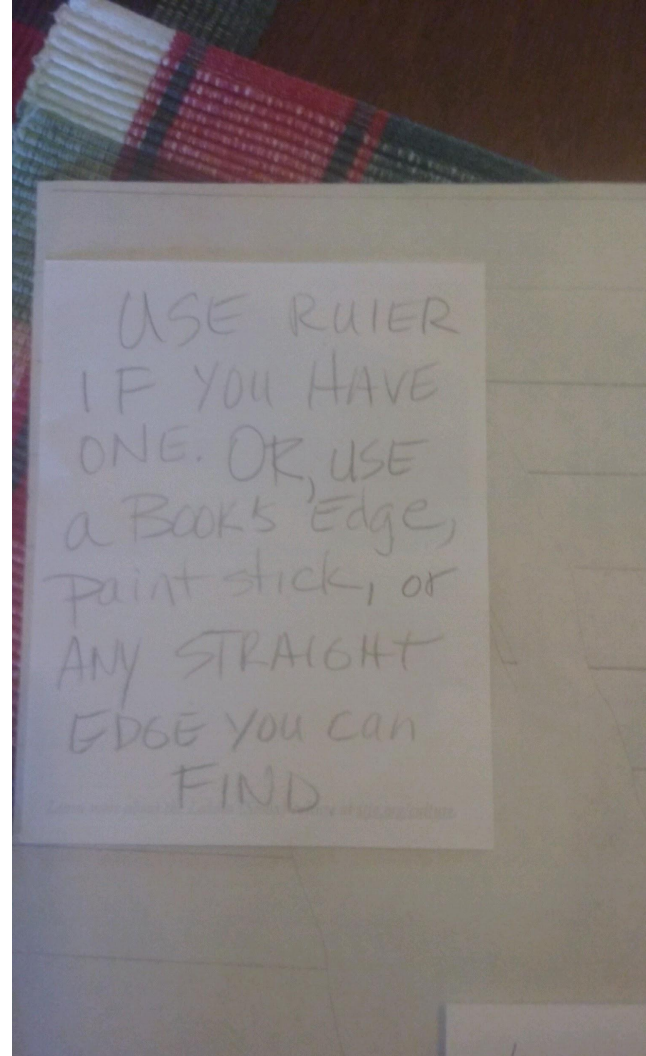 USE RUlER
IF YOU HAVE
ONE. OR, USE
a BOOK'S Edge,
paint stick, or
ANY STRAIGHT
EDGE YOU can
FIND